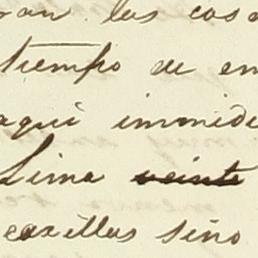 ran las cosa
tiempo de en
aqui inmide
Lima veinte
caxillas sino